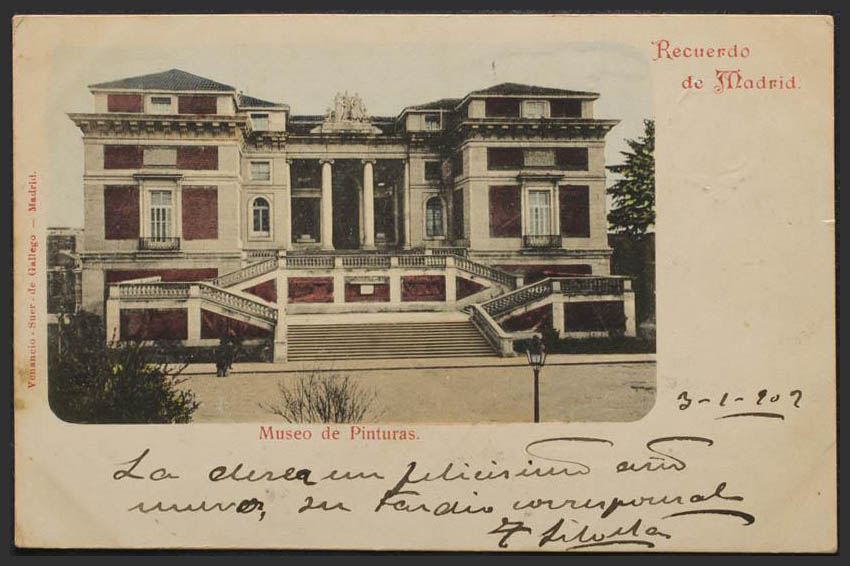 Recuerdo
de Madrid.
Venancio - Sucr. de Gallego — Madrid.
Museo de Pinturas.
3-1-902
La desea un felicisimo año
nuevo, su tardio corresponsal